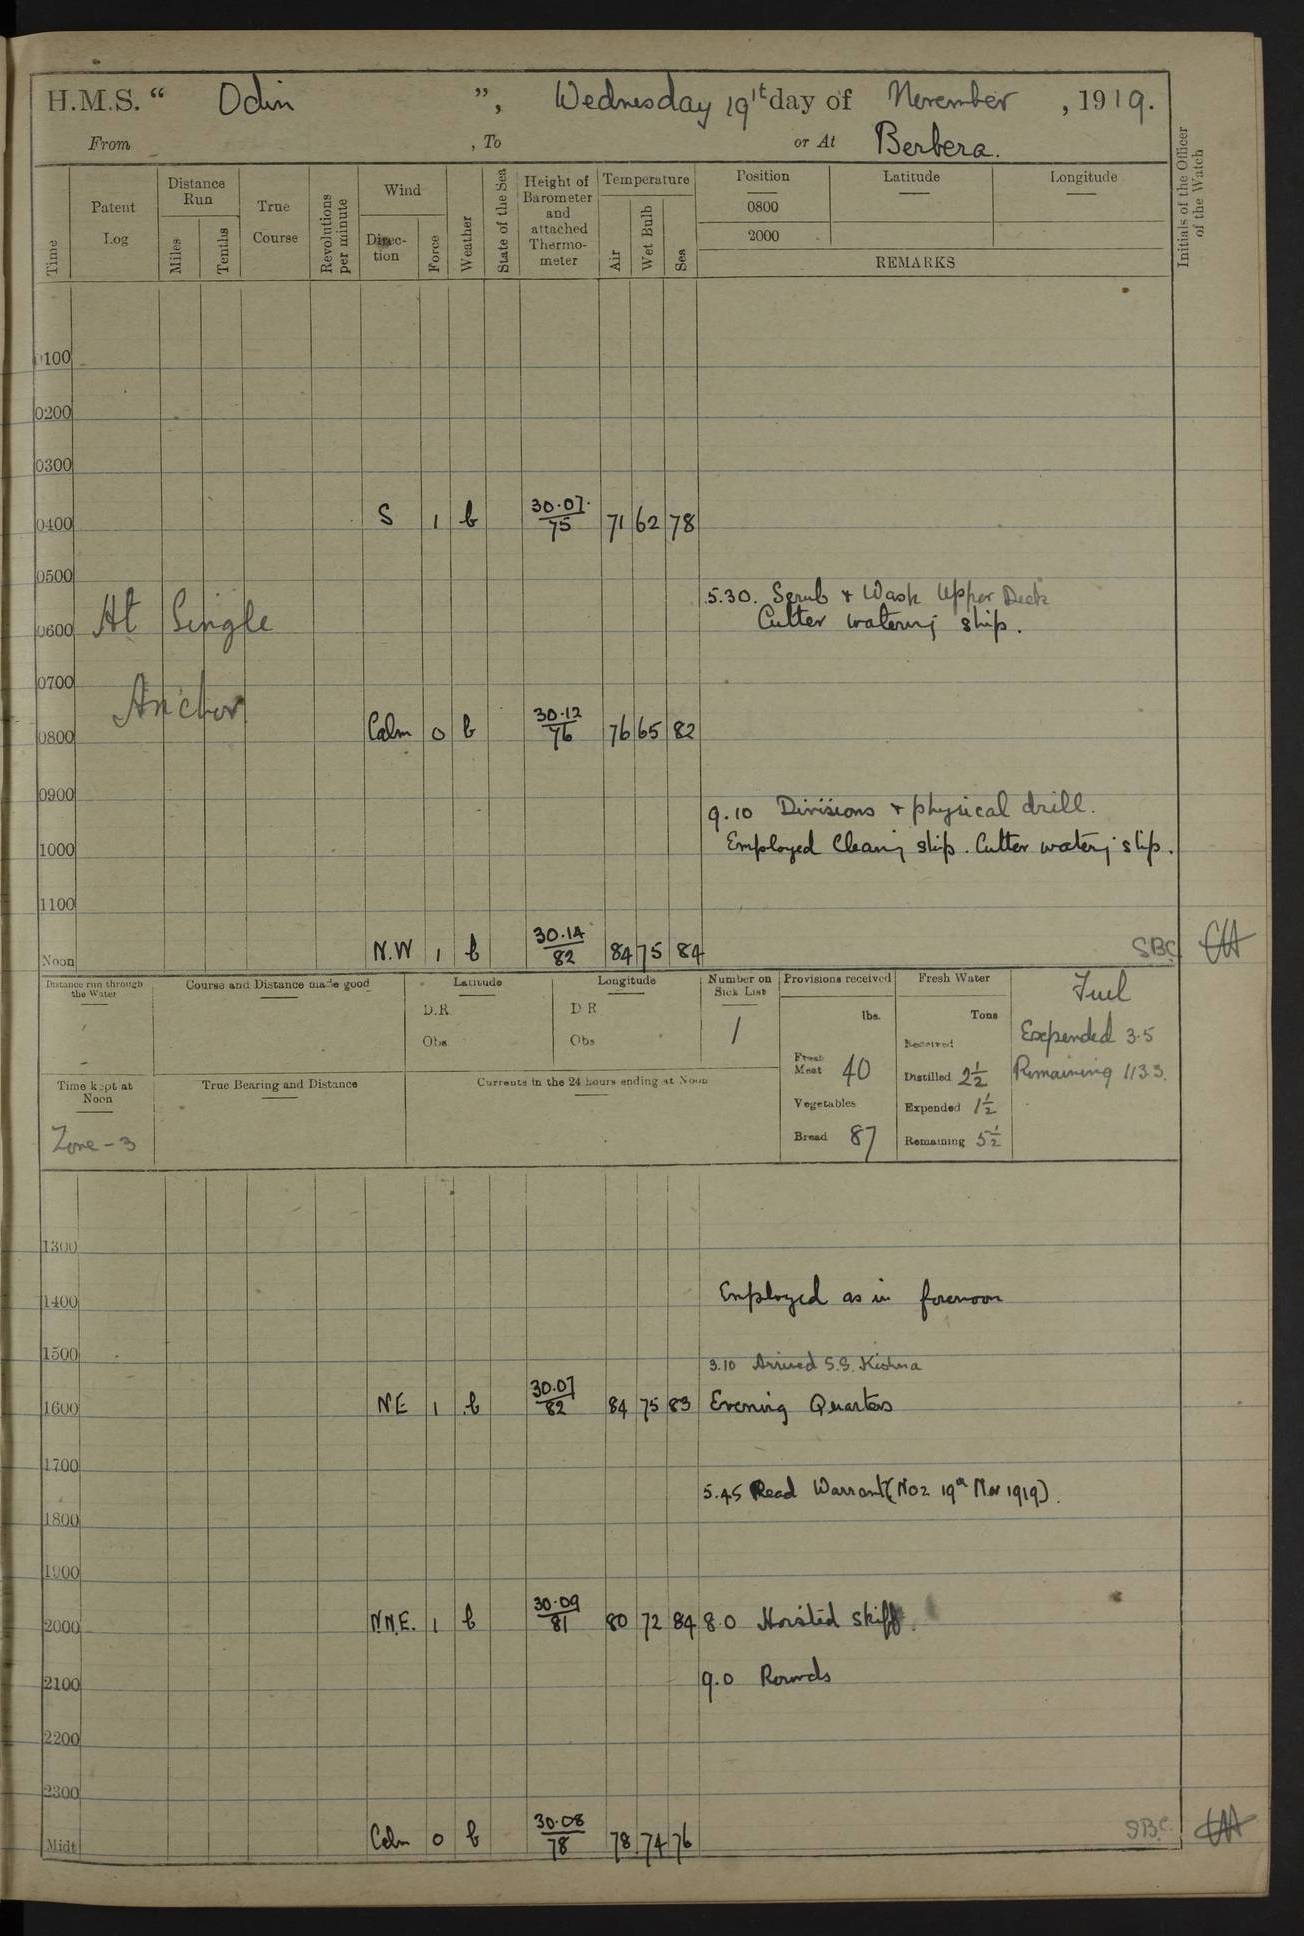 H.M.S. “ Odin ”, Wednesday 19th day of November , 1919.
From , To or At Berbera.
Time
Patent Log
Distance Run
Miles
Tenths
True Course
Revolutions per minute
Wind
Direc-tion
Force
Weather
State of the Sea
Height of Barometer and attached Thermo-meter
Temperature
Air
Wet Bulb
Sea
Position
Latitude
Longitude
0800
2000
REMARKS
Initials of the Officer of the Watch
0100
0200
0300
0400 S 1 b 30.07/75 71 62 78
0500
5.30. Scrub + Wash Upper Deck
0600 At Single Cutter watering ship.
0700 Anchor
0800 Calm 0 b 30.12/76 76 65 82
0900 9.10 Divisions + physical drill.
1000 Employed Cleang ship. Cutter waterg ship.
1100
Noon N.W 1 b 30.14/82 84 75 84 SBC
Distance run through the Water
Course and Distance made good
Latitude
D.R.
Obs
Longitude
D R
Obs
Number on Sick List
1
Provisions received
lbs.
Fresh Meat 40
Vegetables
Bread 87
Fresh Water
Tons
Received
Distilled 2½
Expended 1½
Remaining 5½
Fuel
Expended 3.5
Remaining 113.3.
Time kept at Noon
Zone - 3
True Bearing and Distance
Currents in the 24 hours ending at Noon
1300
1400 Employed as in forenoon
1500 3.10 Arrived S.S. Kishna
1600 NE 1 b 30.07/82 84 75 83 Evening Quarters
1700
5.45 Read Warrant (No 2 19th Nov 1919).
1800
1900
2000 N.N.E. 1 b 30.09/81 80 72 84 8.0 Hoisted skiff.
2100 9.0 Rounds
2200
2300
Midt Calm 0 b 30.08/78 78 74 76 SBC